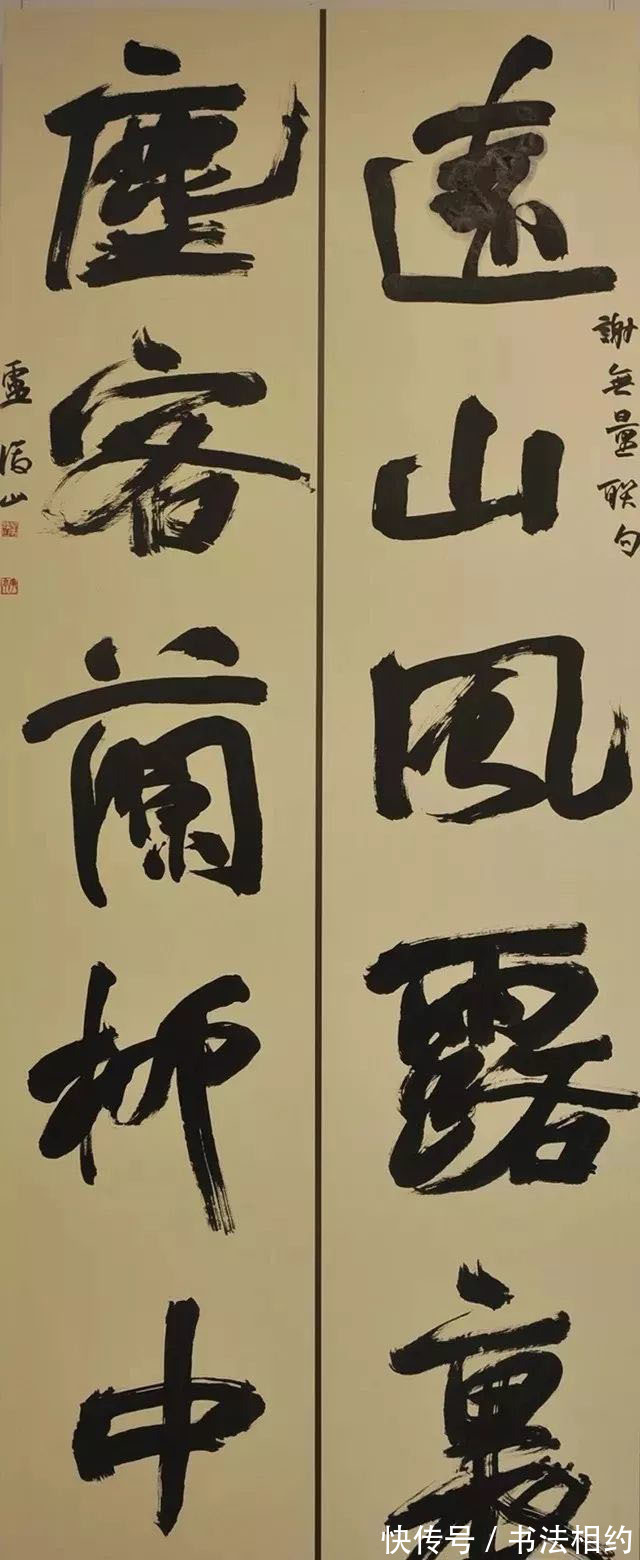 謝無量联句
遠山風露裏
塵客蘭柳中
山
快传号 / 书法相约